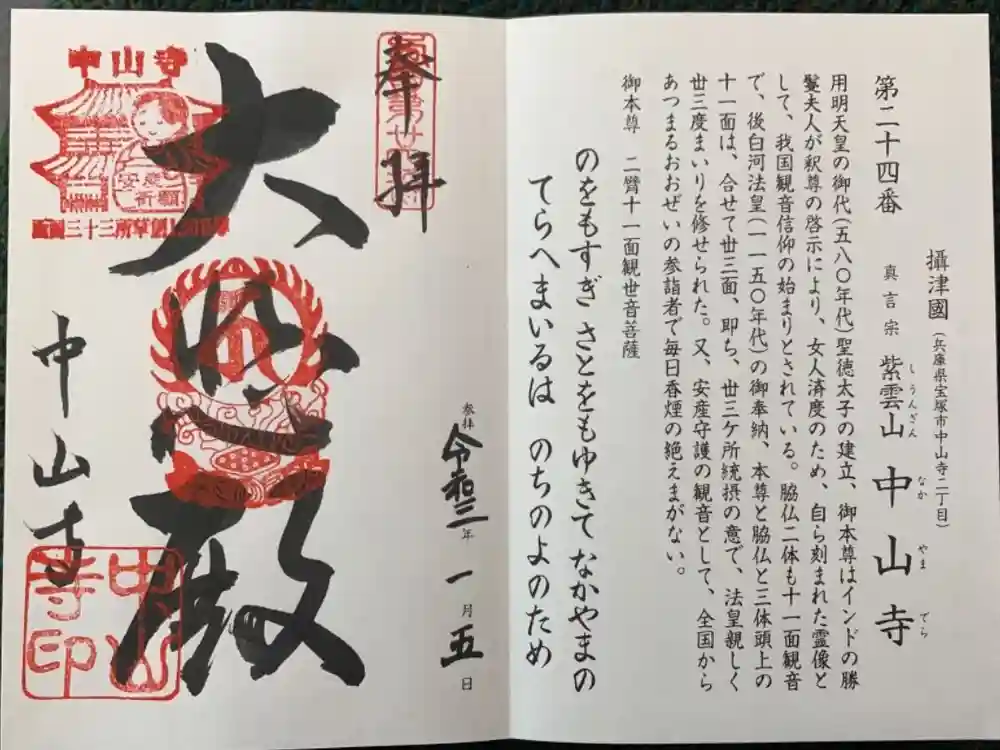 攝津國（兵庫県宝塚市中山寺二丁目）
第二十四番 真言宗 紫雲山 中山寺
しうんざん なかやまでら
用明天皇の御代（五八〇年代）聖徳太子の建立、御本尊はインドの勝
鬘夫人が釈尊の啓示により、女人済度のため、自ら刻まれた霊像と
して、我国観音信仰の始まりとされている。脇仏二体も十一面観音
で、後白河法皇（一一五〇年代）の御奉納、本尊と脇仏と三体頭上の
十一面は、合せて丗三面、即ち、丗三ケ所統摂の意で、法皇親しく
丗三度まいりを修せられた。又、安産守護の観音として、全国から
あつまるおおぜいの参詣者で毎日香煙の絶えまがない。
御本尊 二臂十一面観世音菩薩
のをもすぎ さとをもゆきて なかやまの
てらへまいるは のちのよのため
奉拝
参拝 令和三年一月五日
大悲殿
中山寺
中山寺
安産祈願
中山寺印